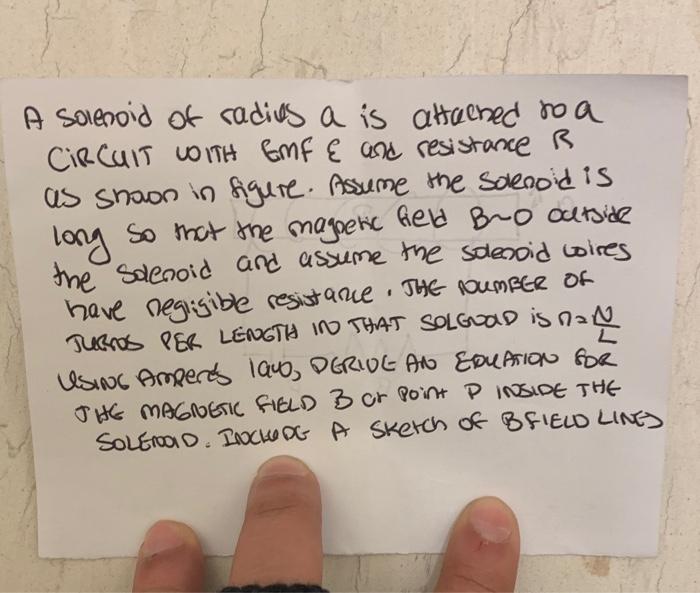 A solenoid of radius a is attached to a
CIRCUIT WITH EMF ε and resistance R
as shown in figure. Assume the solenoid is
long so that the magnetic field B~0 outside
the solenoid and assume the solenoid wires
have negligible resistance. THE NUMBER OF
TURNS PER LENGTH IN THAT SOLENOID is n=N/L
USING Amperes law, DERIVE AN EQUATION FOR
THE MAGNETIC FIELD B at Point P INSIDE THE
SOLENOID. INCLUDE A sketch OF B FIELD LINES